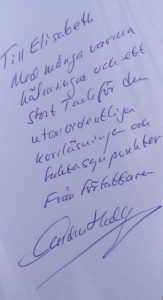 Till Elisabeth
Med många varma
hälsningar och ett
stort Tack för den
utomordentliga
korrläsningen och
faktasynpunkter
Från författaren